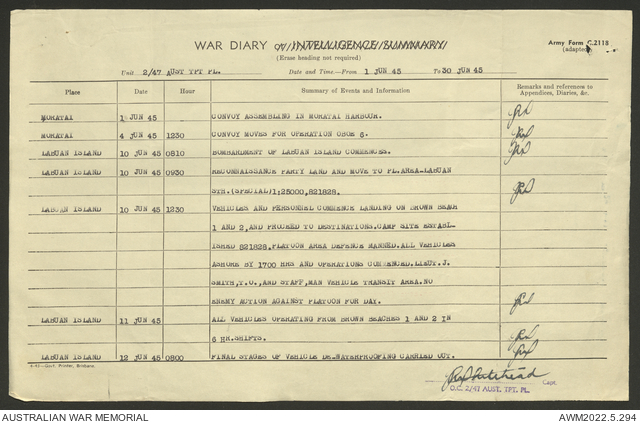 WAR DIARY or INTELLIGENCE SUMMARY
(Erase heading not required)
Army Form C.2118
(adapted)
Unit 2/47 AUST TPT PL. Date and Time—From 1 JUN 45 To 30 JUN 45
Place Date Hour Summary of Events and Information Remarks and references to
Appendices, Diaries, &c.
MORATAI 1 JUN 45 CONVOY ASSEMBLING IN MORATAI HARBOUR.
MORATAI 4 JUN 45 1230 CONVOY MOVES FOR OPERATION OBOE 6.
LABUAN ISLAND 10 JUN 45 0810 BOMBARDMENT OF LABUAN ISLAND COMMENCES.
LABUAN ISLAND 10 JUN 45 0930 RECONNAISSANCE PARTY LAND AND MOVE TO PL.AREA-LABUAN
STH.(SPECIAL)1;25000,821828.
LABUAN ISLAND 10 JUN 45 1230 VEHICLES AND PERSONNEL COMMENCE LANDING ON BROWN BEACH
1 AND 2,AND PROCEED TO DESTINATIONS.CAMP SITE ESTABL-
ISHED 821828.PLATOON AREA DEFENCE MANNED.ALL VEHICLES
ASHORE BY 1700 HRS AND OPERATIONS COMMENCED.LIEUT.J.
SMITH,T.O.,AND STAFF,MAN VEHICLE TRANSIT AREA.NO
ENEMY ACTION AGAINST PLATOON FOR DAY.
LABUAN ISLAND 11 JUN 45 ALL VEHICLES OPERATING FROM BROWN BEACHES 1 AND 2 IN
6 HR.SHIFTS.
LABUAN ISLAND 12 JUN 45 0800 FINAL STAGES OF VEHICLE DE-WATERPROOFING CARRIED OUT.
4-43—Govt. Printer, Brisbane.
Capt.
O.C. 2/47 AUST. TPT. PL.
AUSTRALIAN WAR MEMORIAL AWM2022.5.294